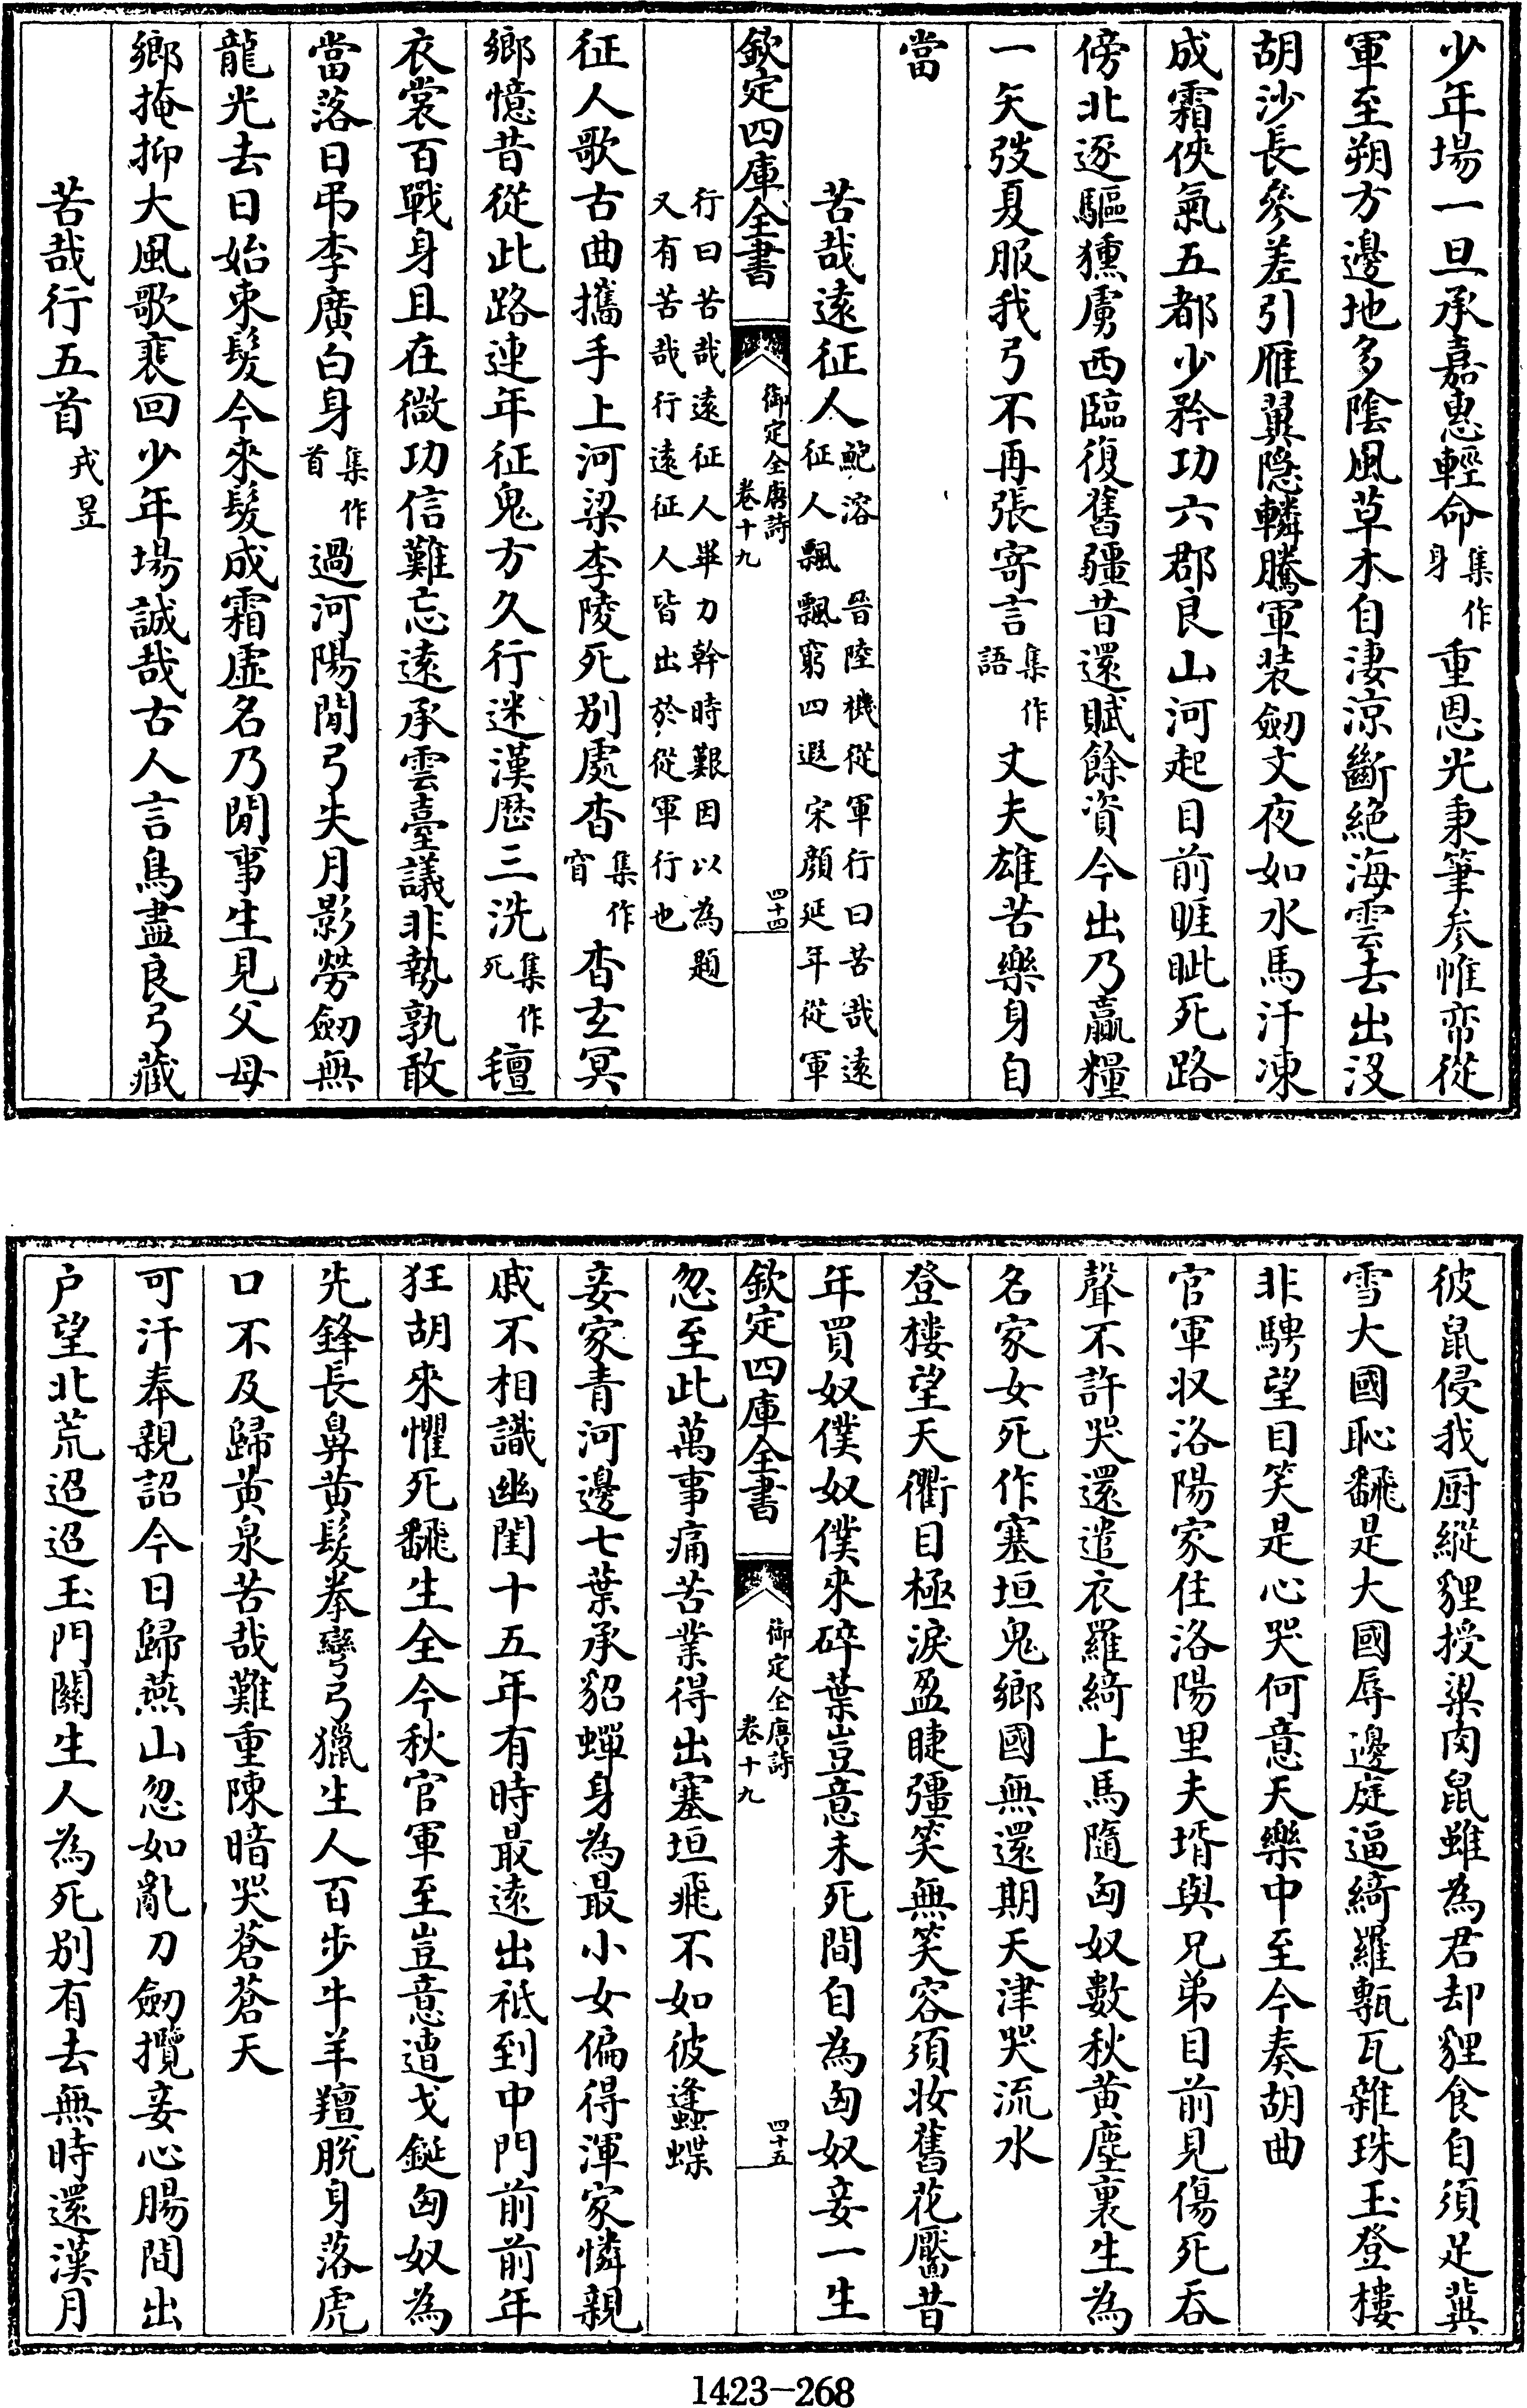 少年場一旦承嘉惠輕命集作身重恩光秉筆参帷帟從
軍至朔方邊地多隂風草木自淒涼斷絶海雲去出沒
胡沙長參差引雁翼隠轔騰軍装劒文夜如水馬汗凍
成霜俠氣五都少矜功六郡良山河起目前睚眦死路
傍北逐驅獯虜西臨復舊疆昔還賦餘資今出乃贏糧
一矢弢夏服我弓不再張寄言集作語丈夫雄苦樂身自
當
苦哉遠征人鮑溶 晉陸機從軍行曰苦哉遠
征人飄飄窮四遐宋顔延年從軍
欽定四庫全書 御定全唐詩卷十九 四十四
行曰苦哉遠征人畢力幹時艱因以為題
又有苦哉行遠征人皆出於從軍行也
征人歌古曲攜手上河梁李陵死别處杳集作窅杳玄冥
鄉憶昔從此路連年征鬼方久行迷漢歴三洗集作死氊
衣裳百戰身且在微功信難忘遠承雲臺議非勢孰敢
當落日弔李廣白身集作首過河陽閒弓失月影勞劒無
龍光去日始束髪今來髪成霜虚名乃閒事生見父母
鄉掩抑大風歌裵回少年場誠哉古人言鳥盡良弓藏
苦哉行五首戎昱
彼鼠侵我厨縱貍授粱肉鼠雖為君却貍食自須足冀
雪大國恥翻是大國辱邊庭逼綺羅甎瓦雜珠玉登樓
非騁望目笑是心哭何意天樂中至今奏胡曲
官軍収洛陽家住洛陽里夫壻與兄弟目前見傷死吞
聲不許哭還遣衣羅綺上馬隨匈奴數秋黄塵裏生為
名家女死作塞垣鬼鄉國無還期天津哭流水
登樓望天衢目極淚盈睫彊笑無笑容須妝舊花靨昔
年買奴僕奴僕來碎葉豈意未死間自為匈奴妾一生
欽定四庫全書 御定全唐詩卷十九 四十五
忽至此萬事痛苦業得出塞垣飛不如彼蠭蝶
妾家青河邊七葉承貂蟬身為最小女偏得渾家憐親
戚不相識幽閨十五年有時最遠出祗到中門前前年
狂胡來懼死翻生全今秋官軍至豈意遭戈鋋匈奴為
先鋒長鼻黄髪拳彎弓獵生人百步牛羊羶脱身落虎
口不及歸黄泉苦哉難重陳暗哭蒼蒼天
可汗奉親詔今日歸燕山忽如亂刀劒攪妾心腸間出
户望北荒迢迢玉門關生人為死别有去無時還漢月
1423-268